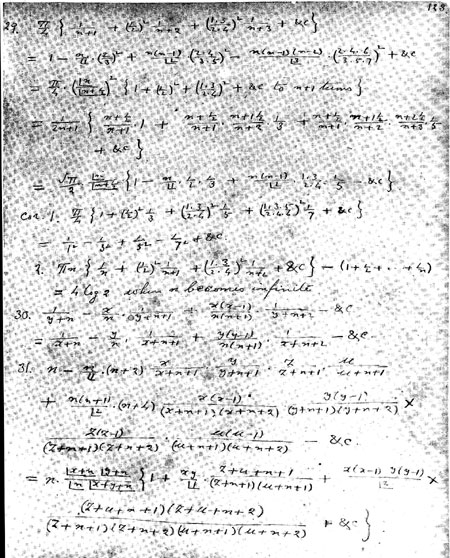 135
29. π/4 { 1/(n+1) + (1/2)² 1/(n+2) + (1·3/2·4)² 1/(n+3) + &c }
= 1 − n/⌊1 · (2/3)² + n(n−1)/⌊2 · (2·4/3·5)² − n(n−1)(n−2)/⌊3 · (2·4·6/3·5·7)² + &c
= π/4 · (⌊n/⌊n+½)² { 1 + (1/2)² + (1·3/2·4)² + &c to n+1 terms }
= 1/(2n+1) { (n+½)/(n+1) · 1 + (n+½)/(n+1) · (n+1½)/(n+2) · 1/3 + (n+½)/(n+1) · (n+1½)/(n+2) · (n+2½)/(n+3) · 1/5
+ &c }
= √π/2 · ⌊n/⌊n+½ { 1 − n/⌊1 · 1/2 · 1/3 + n(n−1)/⌊2 · 1·3/2·4 · 1/5 − &c }
Cor 1. π/4 { 1 + (1/2)² 1/3 + (1·3/2·4)² 1/5 + (1·3·5/2·4·6)² 1/7 + &c }
= 1/1² − 1/3² + 1/5² − 1/7² + &c.
2. πn { 1/n + (1/2)² 1/(n+1) + (1·3/2·4)² 1/(n+2) + &c } − (1 + 1/2 + .. + 1/n)
= 4 log 2 when n becomes infinite
30. 1/(y+n) − x/n · 1/(y+n+1) + x(x−1)/n(n+1) · 1/(y+n+2) − &c
= 1/(x+n) − y/n · 1/(x+n+1) + y(y−1)/n(n+1) · 1/(x+n+2) − &c.
31. n − n/⌊1 · (n+2) x/(x+n+1) · y/(y+n+1) · z/(z+n+1) · u/(u+n+1)
+ n(n+1)/⌊2 · (n+4) x(x−1)/(x+n+1)(x+n+2) · y(y−1)/(y+n+1)(y+n+2) ×
z(z−1)/(z+n+1)(z+n+2) · u(u−1)/(u+n+1)(u+n+2) − &c.
= n · ⌊x+n ⌊y+n/⌊n ⌊x+y+n { 1 + xy/⌊1 · (z+u+n+1)/(z+n+1)(u+n+1) + x(x−1) y(y−1)/⌊2 ×
(z+u+n+1)(z+u+n+2)/(z+n+1)(z+n+2)(u+n+1)(u+n+2) + &c }